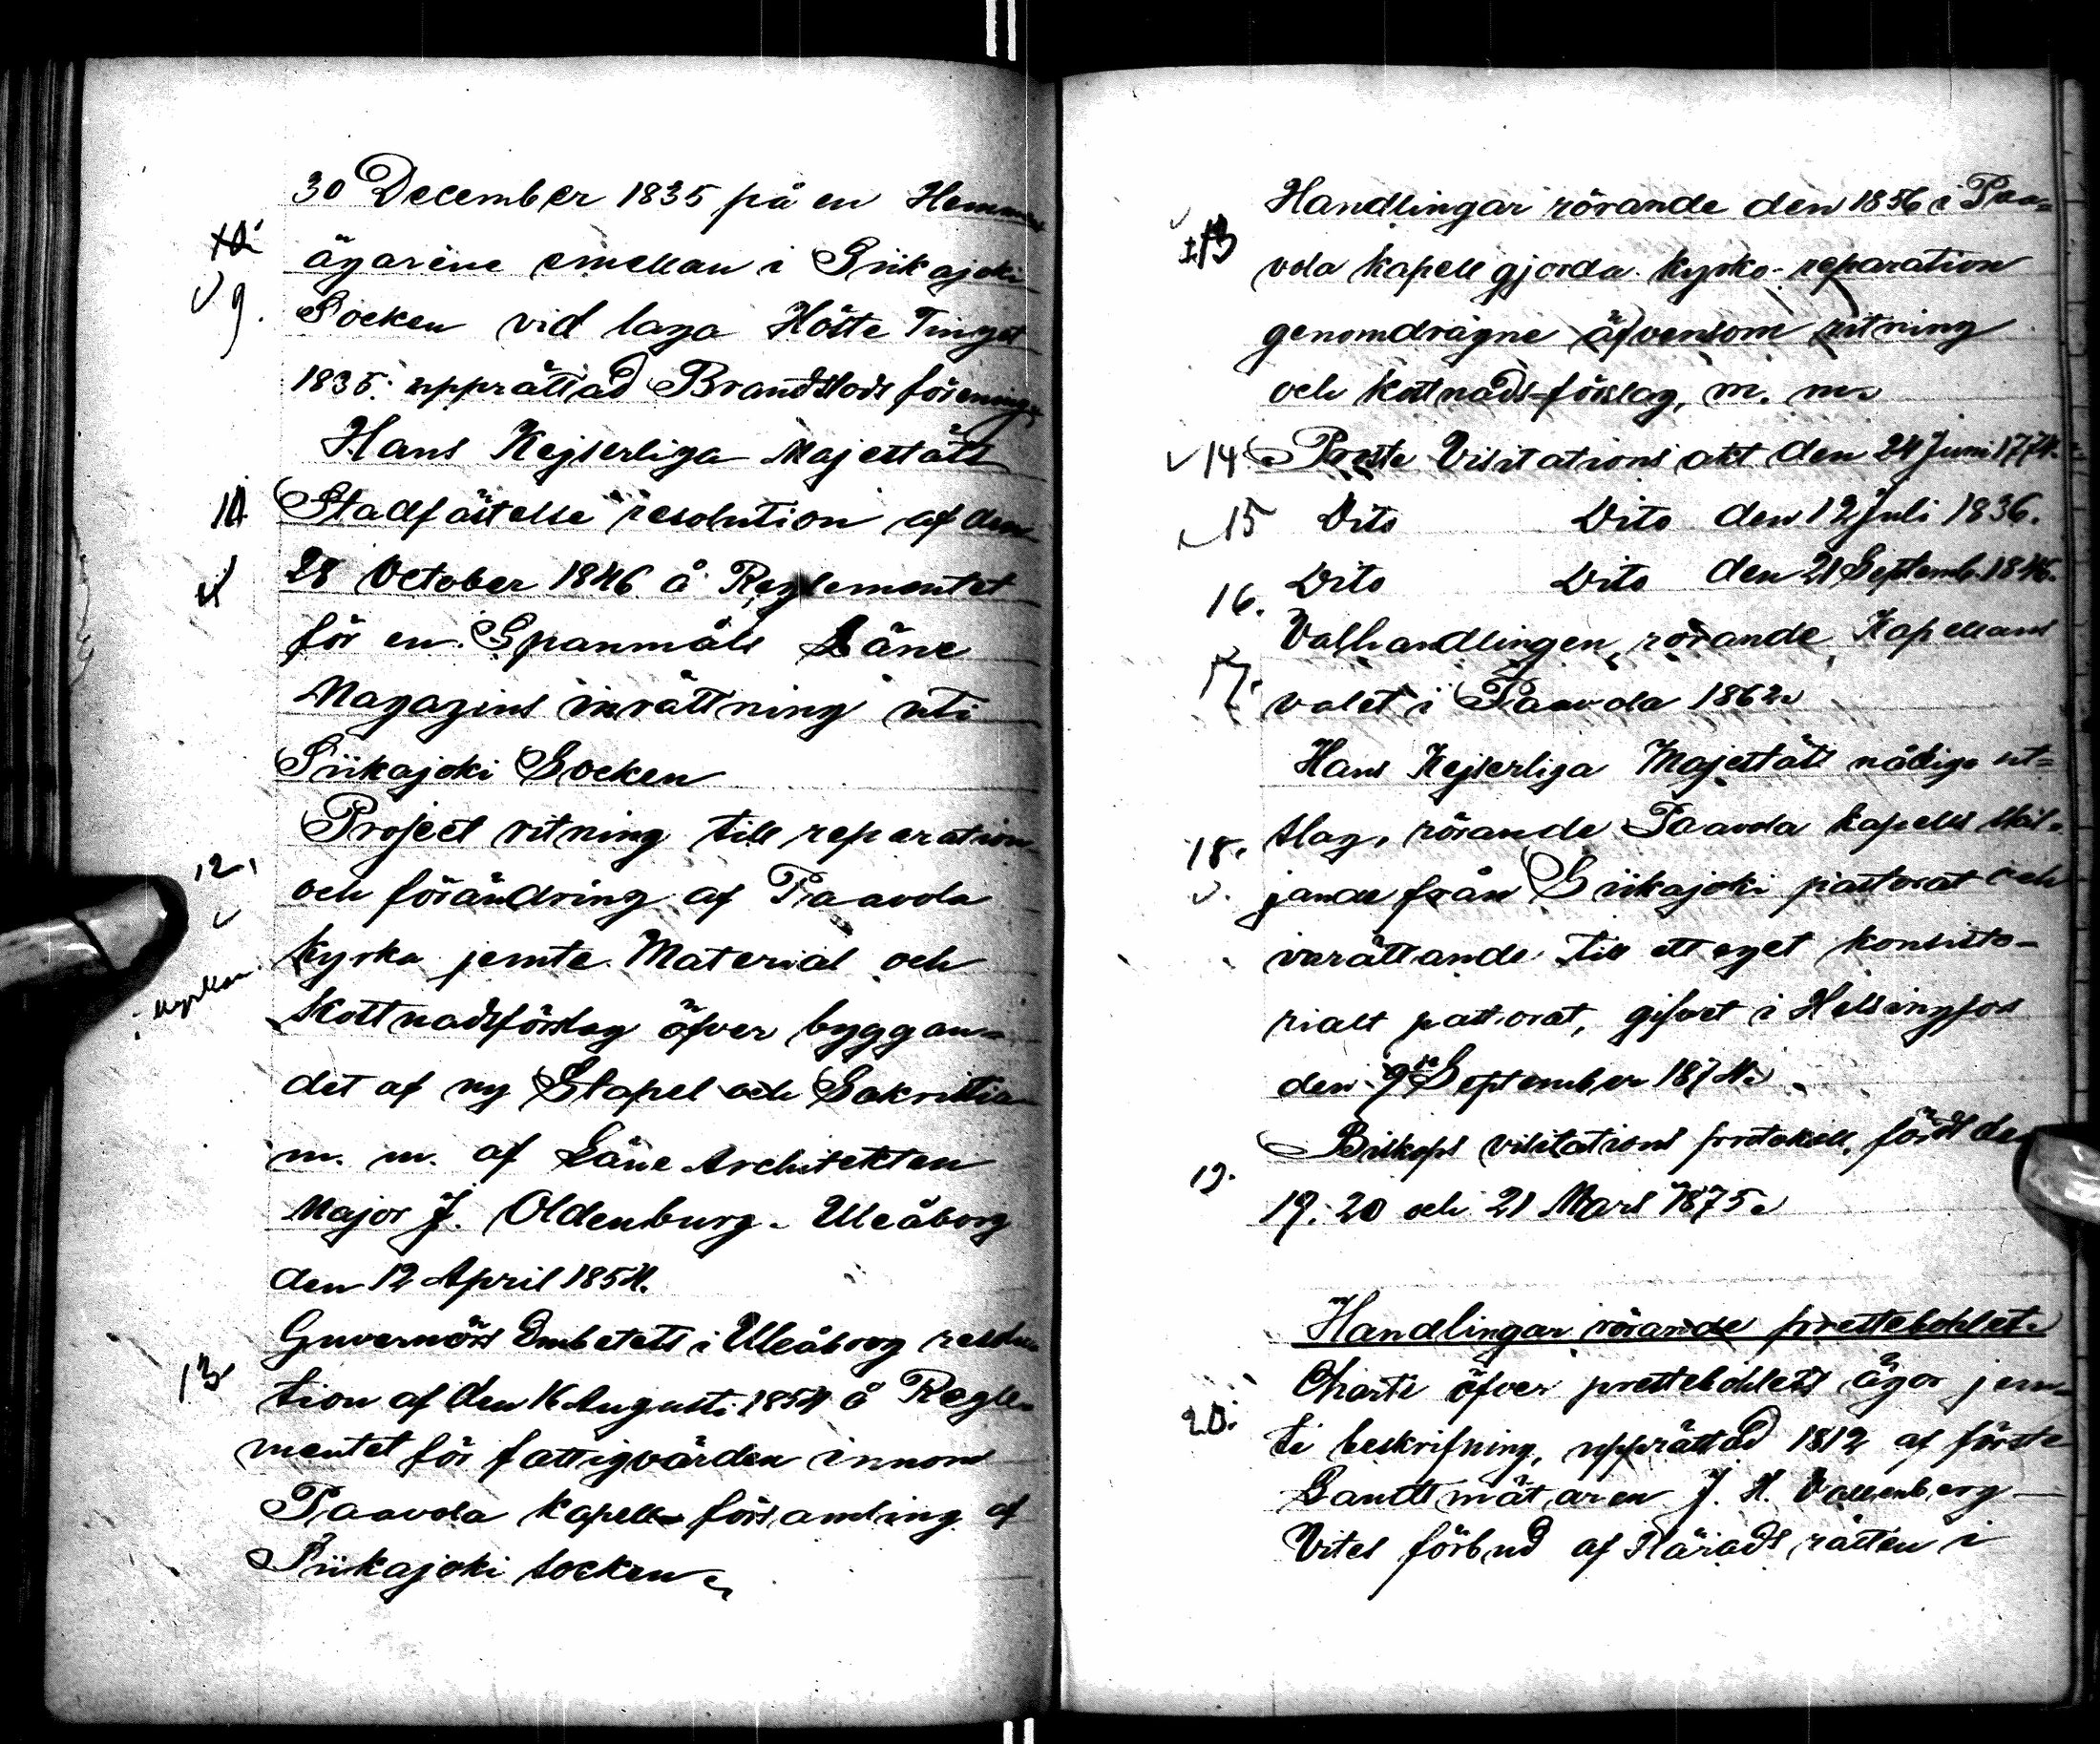 30 December 1835 på en Hemmans
ägarene emellan i Siikajoki
9. Socken vid laga Höste Tinget
1835. upprättad Brandstods förening
Hans Kejserliga Majestäts
10 Stadfästelse resolution af den
28 October 1846 å Reglementet
för en Spanmåls Låne
Magazins inrättning uti
Siikajoki Socken
Project ritning till reparation
12. och förändring af Paavola
kyrka jemte Material och
Kostnadsförslag öfver byggan-
det af ny Stapel och Sakristia
m. m. af Läne Architekten
Major J. Oldenburg. Uleåborg
den 12 April 1854.
Guvernörs Embetets i Uleåborg resolu
13 tion af den 16 Augusti 1854 å Regle-
mentet för fattigvården innom
Paavola kapell-församling af
Siikajoki socken
Handlingar rörande den 1856 i Paa=
13 vola kapell gjorda kyrko-reparation
genomdragne äfvensom ritning
och kostnads-förslag, m. m.
14 Prosta Visitations akt den 24 Juni 1774.
15 Dito Dito den 12 Juli 1836.
16. Dito Dito den 21 Septemb. 1846.
Valhandlingen, rörande Kapellans
17. valet i Paavola 1862.
Hans Kejserliga Majestäts nådiga ut=
18. slag, rörande Paavola kapells skil-
jande från Siikajoki pastorat och
inrättande till ett eget konsisto-
rialt pastorat, gifvet i Helsingfors
den 9de September 1874.
Biskops visitations protokoll, fördt den
19. 19. 20 och 21 Mars 1875.
Handlingar rörande prestebohlet.
Charta öfver prestebohlets ägor jem-
20. te beskrifning, upprättad 1812 af förste
Landtmätaren J. H. Vallenberg
Vites förbud af Härads rätten i